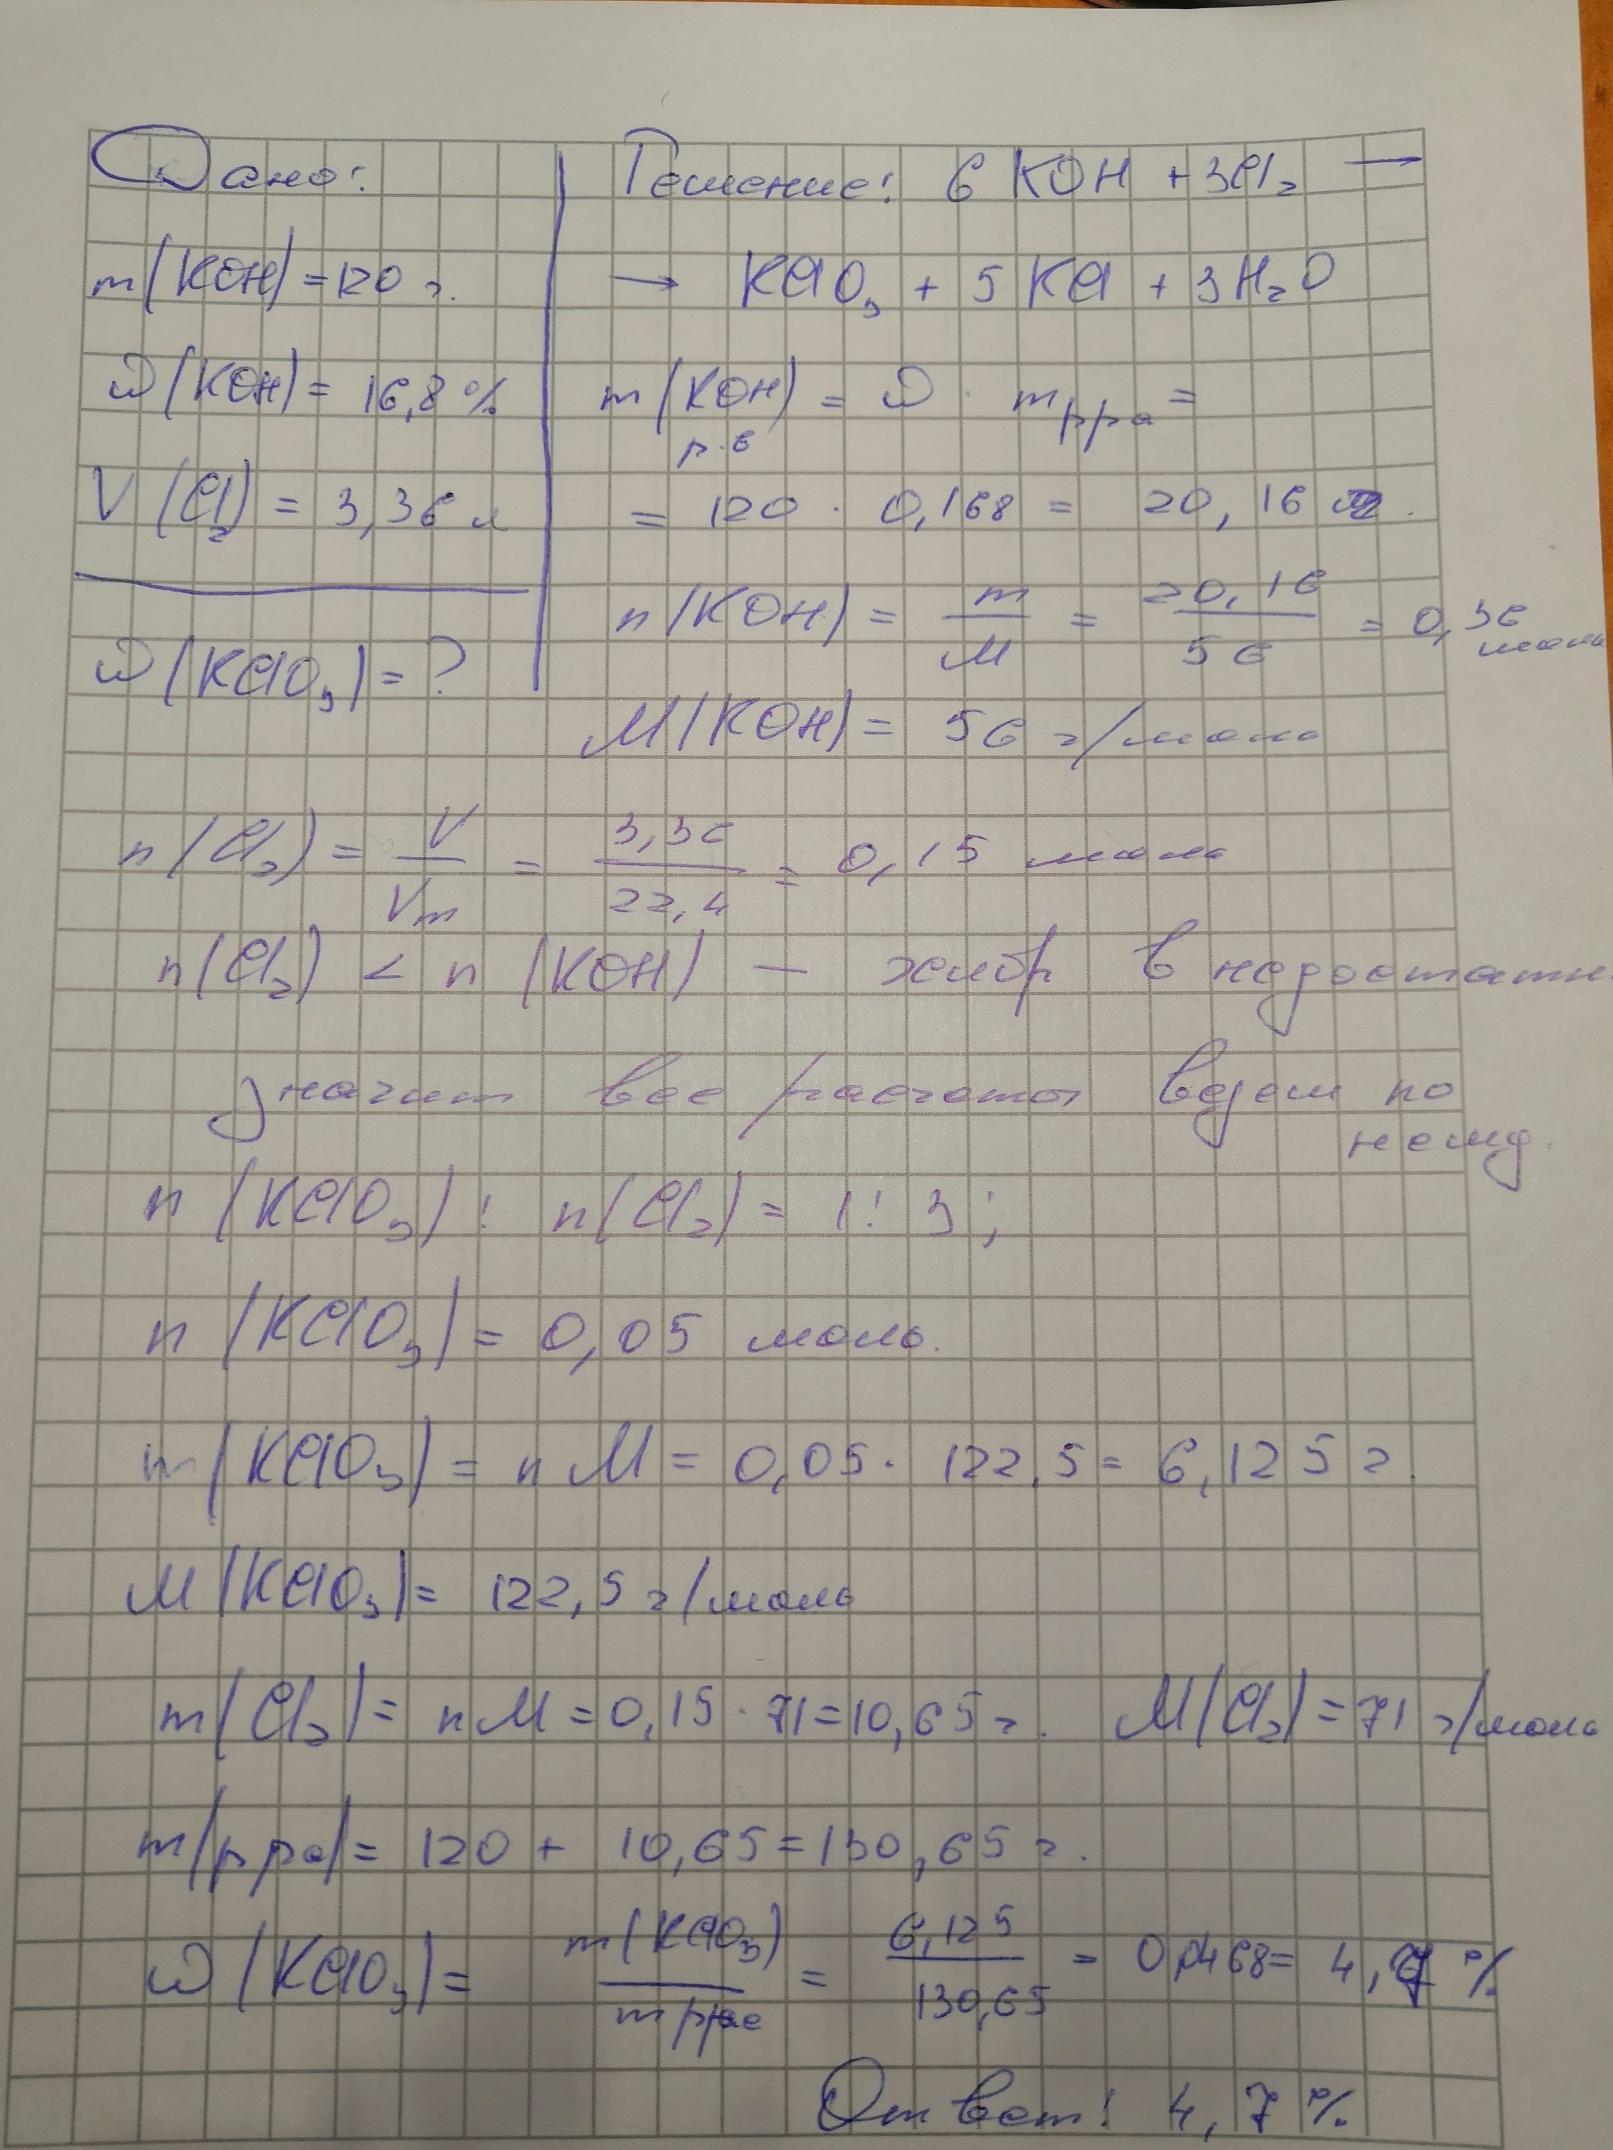 Дано:
Решение: 6 KOH + 3Cl₂ →
m(KOH) = 120 г.
→ KClO₃ + 5 KCl + 3H₂O
ω(KOH) = 16,8 %
m(KOH) р.в = ω · m рра =
V(Cl₂) = 3,36 л
= 120 · 0,168 = 20,16 г.
n(KOH) = m/M = 20,16/56 = 0,36 моль
ω(KClO₃) = ?
M(KOH) = 56 г/моль
n(Cl₂) = V/Vm = 3,36/22,4 = 0,15 моль
n(Cl₂) < n(KOH) — хлор в недостатк
значит все расчеты ведем по
нему.
n(KClO₃) : n(Cl₂) = 1 : 3 ;
n(KClO₃) = 0,05 моль.
m(KClO₃) = n M = 0,05 · 122,5 = 6,125 г.
M(KClO₃) = 122,5 г/моль
m(Cl₂) = n M = 0,15 · 71 = 10,65 г. M(Cl₂) = 71 г/моль
m(р ра) = 120 + 10,65 = 130,65 г.
ω(KClO₃) = m(KClO₃)/m рра = 6,125/130,65 = 0,0468 = 4,7 %
Ответ: 4,7 %